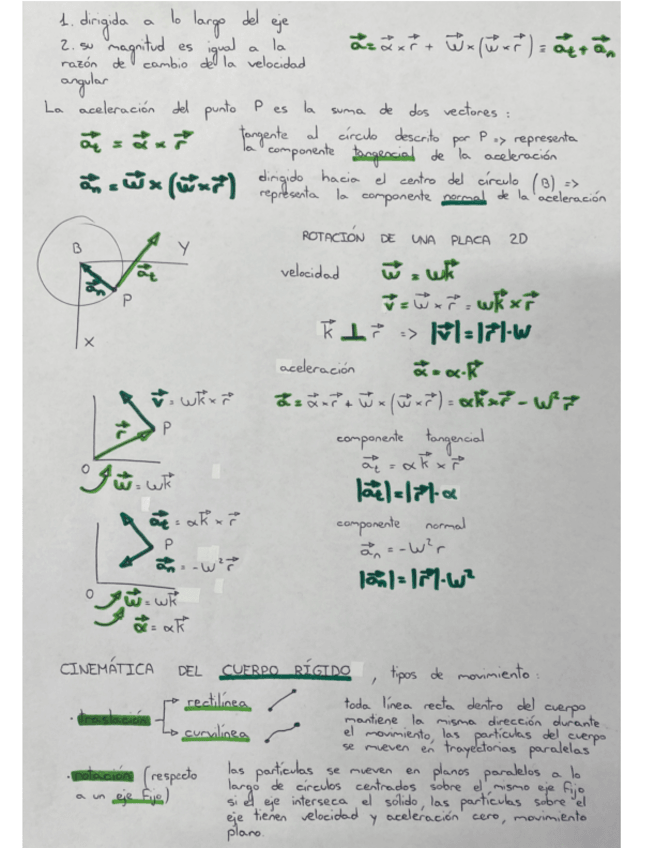 1. dirigida a lo largo del eje
2. su magnitud es igual a la
razón de cambio de la velocidad
angular
a⃗ = α⃗ × r⃗ + w⃗ × (w⃗ × r⃗) = a⃗t + a⃗n
La aceleración del punto P es la suma de dos vectores :
a⃗t = α⃗ × r⃗
tangente al círculo descrito por P => representa
la componente tangencial de la aceleración
a⃗n = w⃗ × (w⃗ × r⃗)
dirigido hacia el centro del círculo (B) =>
representa la componente normal de la aceleración
B
Y
a⃗t
a⃗n
P
X
ROTACIÓN DE UNA PLACA 2D
velocidad w⃗ = wk⃗
v⃗ = w⃗ × r⃗ = wk⃗ × r⃗
k⃗ ⊥ r⃗ => |v⃗| = |r⃗|·w
aceleración α⃗ = α·k⃗
a⃗ = α⃗ × r⃗ + w⃗ × (w⃗ × r⃗) = αk⃗ × r⃗ - w²r⃗
componente tangencial
a⃗t = αk⃗ × r⃗
|a⃗t| = |r⃗|·α
componente normal
a⃗n = -w²r
|a⃗n| = |r⃗|·w²
v⃗ = wk⃗ × r⃗
r⃗
P
O
w⃗ = wk⃗
a⃗t = αk⃗ × r⃗
P
a⃗n = -w²r⃗
O
w⃗ = wk⃗
α⃗ = αk⃗
CINEMÁTICA DEL CUERPO RÍGIDO, tipos de movimiento :
· traslación
rectilínea
curvilínea
toda línea recta dentro del cuerpo
mantiene la misma dirección durante
el movimiento, las partículas del cuerpo
se mueven en trayectorias paralelas
· rotación (respecto
a un eje fijo)
las partículas se mueven en planos paralelos a lo
largo de círculos centrados sobre el mismo eje fijo
si el eje interseca el sólido, las partículas sobre el
eje tienen velocidad y aceleración cero, movimiento
plano.